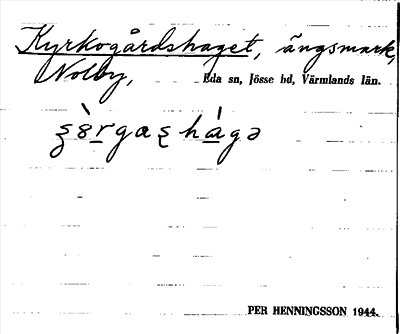 Kyrkogårdshaget, ängsmark,
Nolby, Eda sn, Jösse hd, Värmlands län.
PER HENNINGSSON 1944.